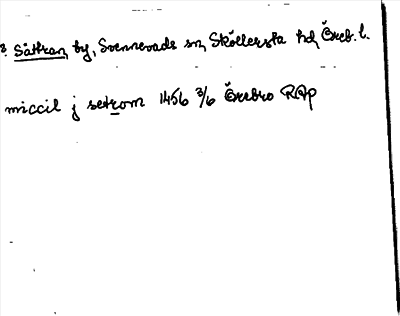 ? Såttran, by, Svennevads sn, Sköllersta hd, Öreb. l.
miccil j setrom 1456 3/6 Örebro RAp